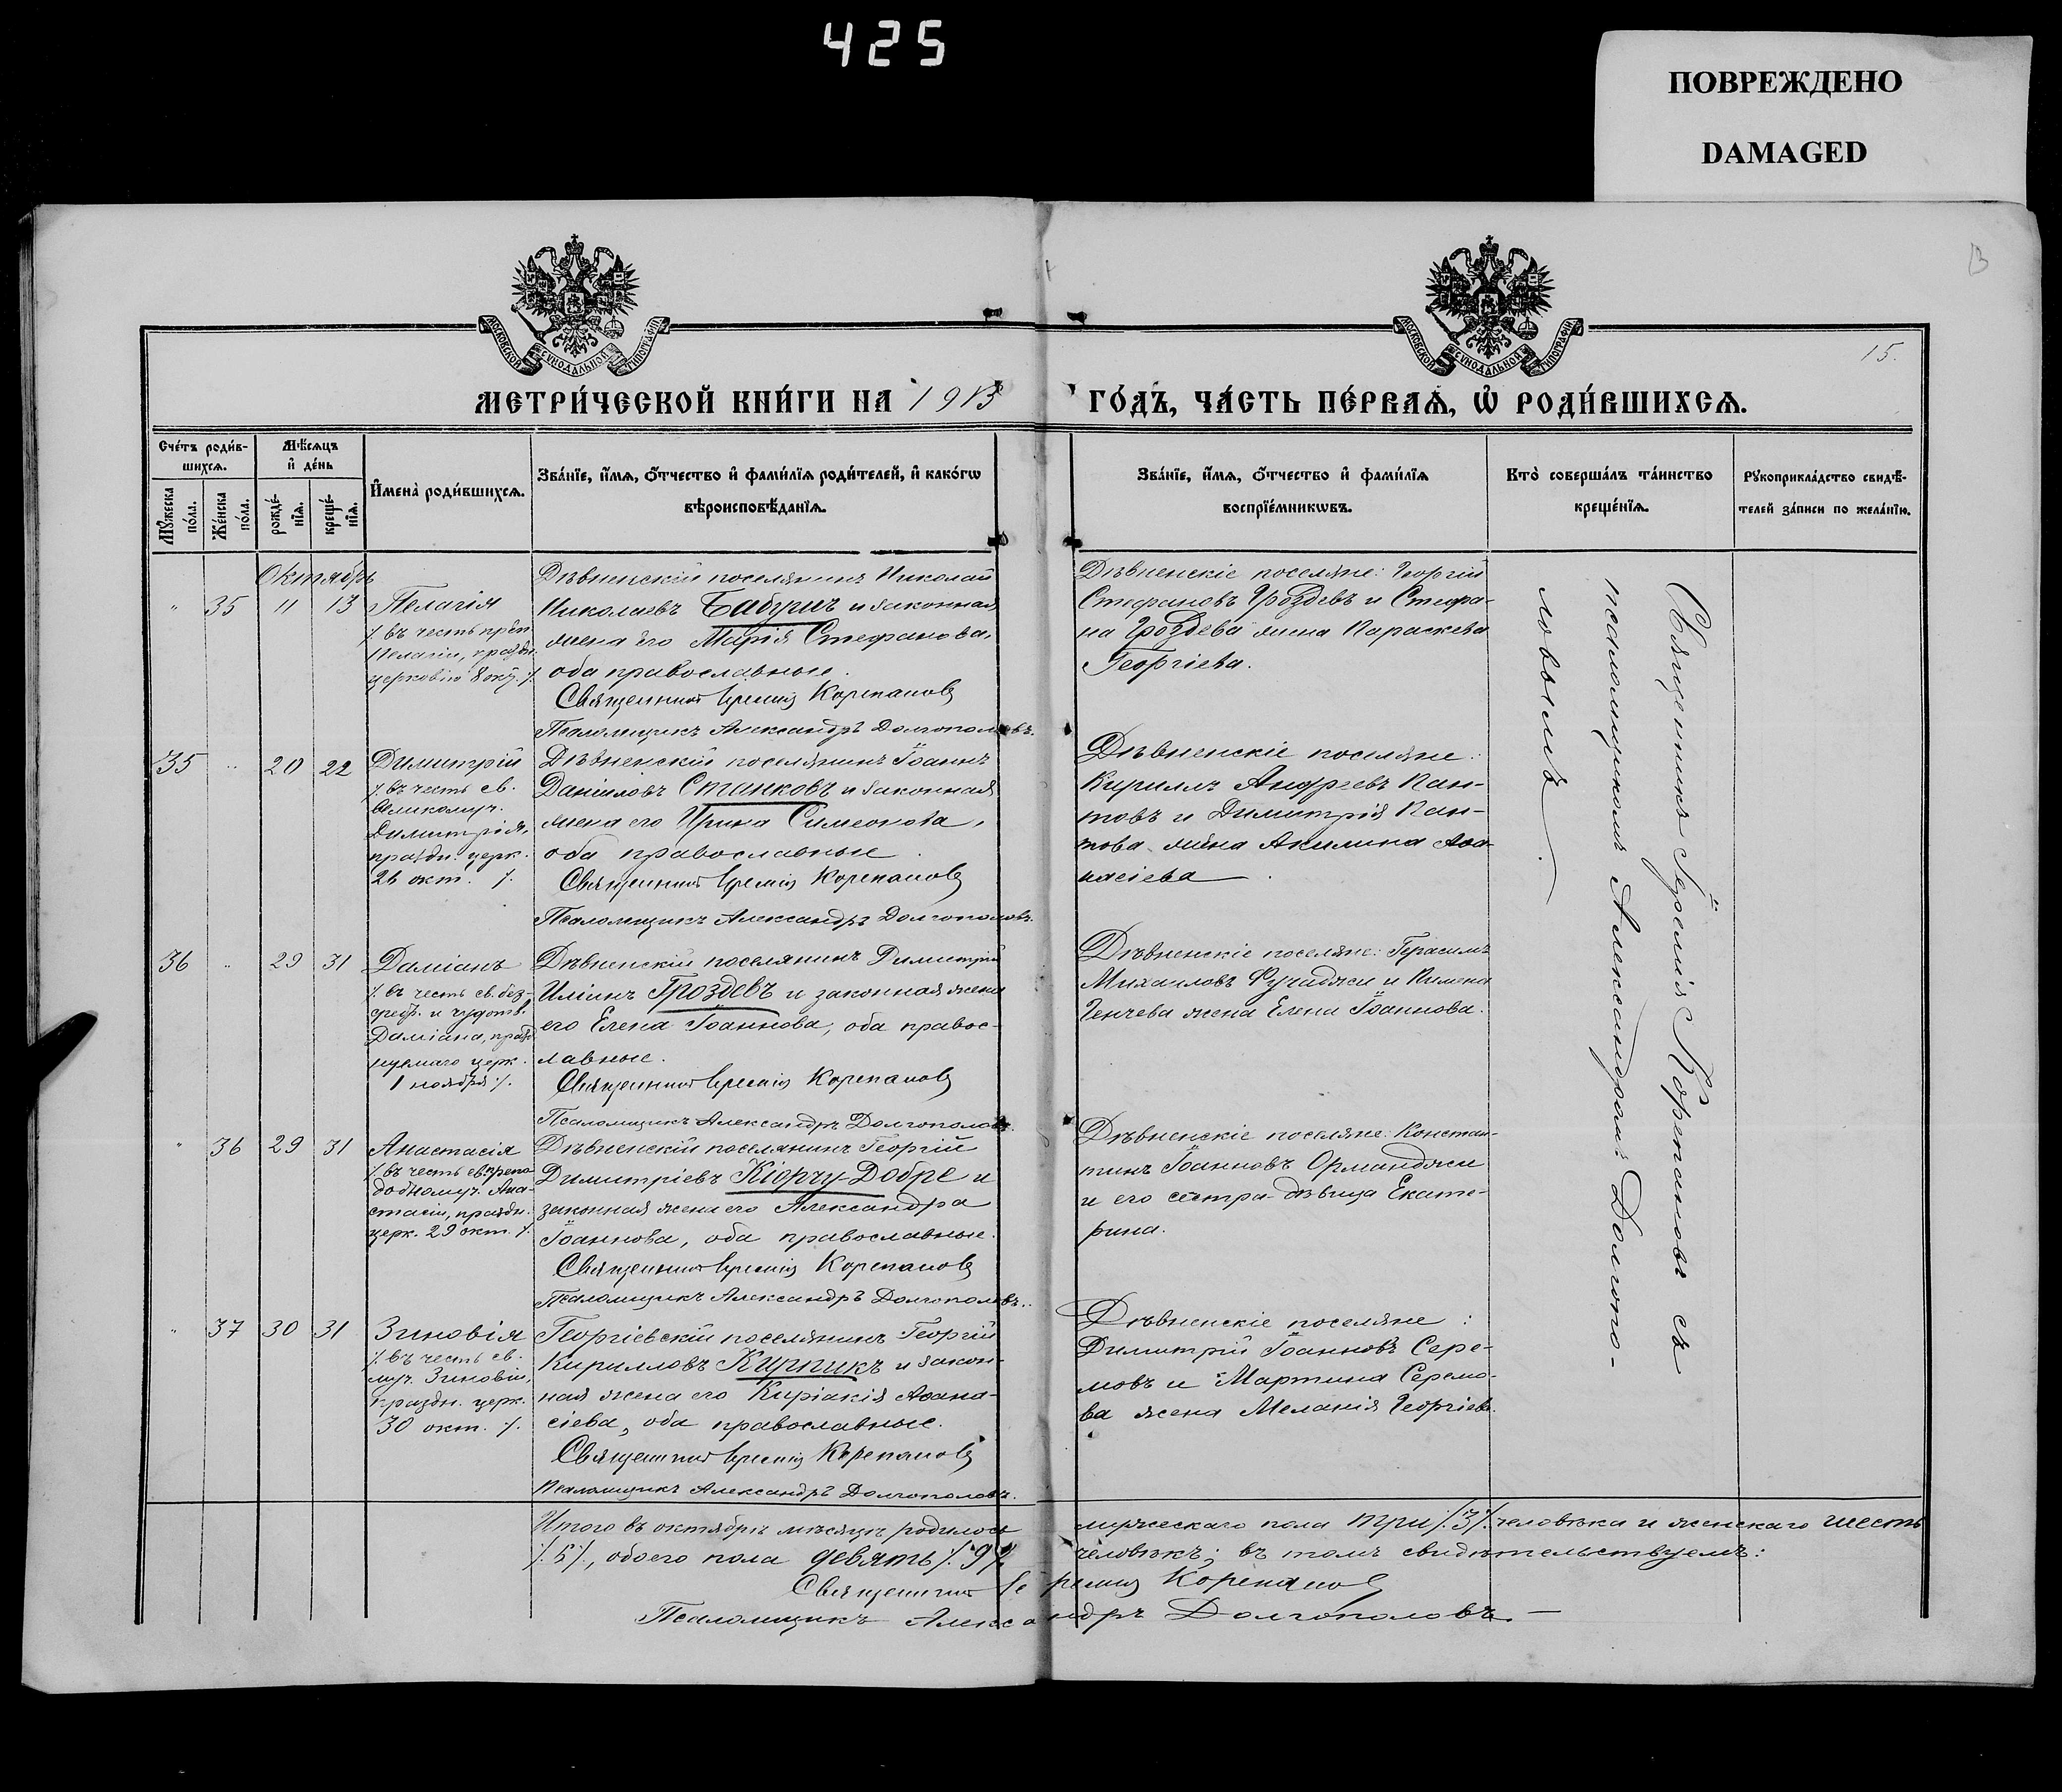 425
ПОВРЕЖДЕНО
DAMAGED
МОСКОВСКОЙ СѴНОДАЛЬНОЙ ТИПОГРАФІИ
МОСКОВСКОЙ СѴНОДАЛЬНОЙ ТИПОГРАФІИ
15.
МЕТРИ́ЧЕСКОЙ КНИ́ГИ НА 1913 ГО́ДЪ, ЧА́СТЬ ПЕ́РВАѦ, Ѡ҆ РОДИ́ВШИХСѦ.
Сче́тъ роди́в-
шихсѧ.
Мꙋ́жеска
по́ла.
Же́нска
по́ла.
Мѣ́сѧцъ
и҆ де́нь
рожде́-
нїѧ.
креще́-
нїѧ.
И҆мена̀ роди́вшихсѧ.
Зва́нїе, и҆́мѧ, о҆́тчество и҆ фамі́лїѧ роди́телей, и҆ како́гѡ
вѣроисповѣ́данїѧ.
Зва́нїе, и҆́мѧ, о҆́тчество и҆ фамі́лїѧ
воспрїе́мникѡвъ.
Кто̀ соверша́лъ та́инство
креще́нїѧ.
Рꙋкоприкла́дство свидѣ́-
телей за́писи по жела́нїю.
Октябрь
" 35 11 13
Пелагія
/. въ честь преп.
Пелагіи, праздн.
церковію 8 окт. /.
Дѣвненскій поселянинъ Николай
Николаевъ Бабучъ и законная
жена его Марія Стефанова,
оба православные.
Священникъ Іеремія Корепановъ
Псаломщикъ Александръ Долгополовъ.
Дѣвненскіе поселяне: Георгій
Стефановъ Гроздевъ и Стефа-
на Гроздева жена Параскева
Георгіева.
35 " 20 22
Димитрій
/. въ честь св.
Великомуч.
Димитрія,
праздн. церк.
26 окт. /.
Дѣвненскій поселянинъ Іоаннъ
Даніиловъ Станковъ и законная
жена его Ирина Симеонова,
оба православные.
Священникъ Іеремія Корепановъ
Псаломщикъ Александръ Долгополовъ.
Дѣвненскіе поселяне:
Кириллъ Андреевъ Пан-
товъ и Димитрія Пан-
това жена Акилина Аѳа-
насіева.
36 " 29 31
Даміанъ
/. въ честь св. без-
среб. и чудотв.
Даміана, празд-
нуемаго церк.
1 ноября /.
Дѣвненскій поселянинъ Димитрій
Иліинъ Гроздевъ и законная жена
его Елена Іоаннова, оба правос-
лавные.
Священникъ Іеремія Корепановъ
Псаломщикъ Александръ Долгополовъ.
Дѣвненскіе поселяне: Герасимъ
Михаиловъ Фучаджи и Пимена
Генчева жена Елена Іоаннова.
" 36 29 31
Анастасія
/. въ честь св. препо-
добномуч. Ана-
стасіи, праздн.
церк. 29 окт. /.
Дѣвненскій поселянинъ Георгій
Димитріевъ Кіорчу-Добре и
законная жена его Александра
Іоаннова, оба православные.
Священникъ Іеремія Корепановъ
Псаломщикъ Александръ Долгополовъ.
Дѣвненскіе поселяне: Констан-
тинъ Іоанновъ Орманджи
и его сестра-дѣвица Екате-
рина.
" 37 30 31
Зиновія
/. въ честь св.
муч. Зиновіи,
праздн. церк.
30 окт. /.
Георгіевскій поселянинъ Георгій
Кирилловъ Кирпикъ и закон-
ная жена его Киріакія Аѳана-
сіева, оба православные.
Священникъ Іеремія Корепановъ
Псаломщикъ Александръ Долгополовъ.
Дѣвненскіе поселяне:
Димитрій Іоанновъ Сере-
мовъ и Мартина Серемо-
ва жена Меланія Георгіева.
Священникъ Іеремія Корепановъ съ
псаломщикомъ Александромъ Долгопо-
ловымъ.
Итого въ октябрѣ мѣсяцѣ родилось мужескаго пола три /.3/. человѣка и женскаго шесть
/.6/., обоего пола девять /.9/. человѣкъ; въ томъ свидѣтельствуемъ:
Священникъ Іеремія Корепановъ
Псаломщикъ Александръ Долгополовъ.